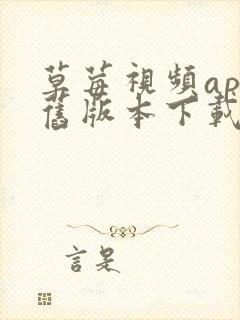 草莓視頻ap
舊版本下載
言是